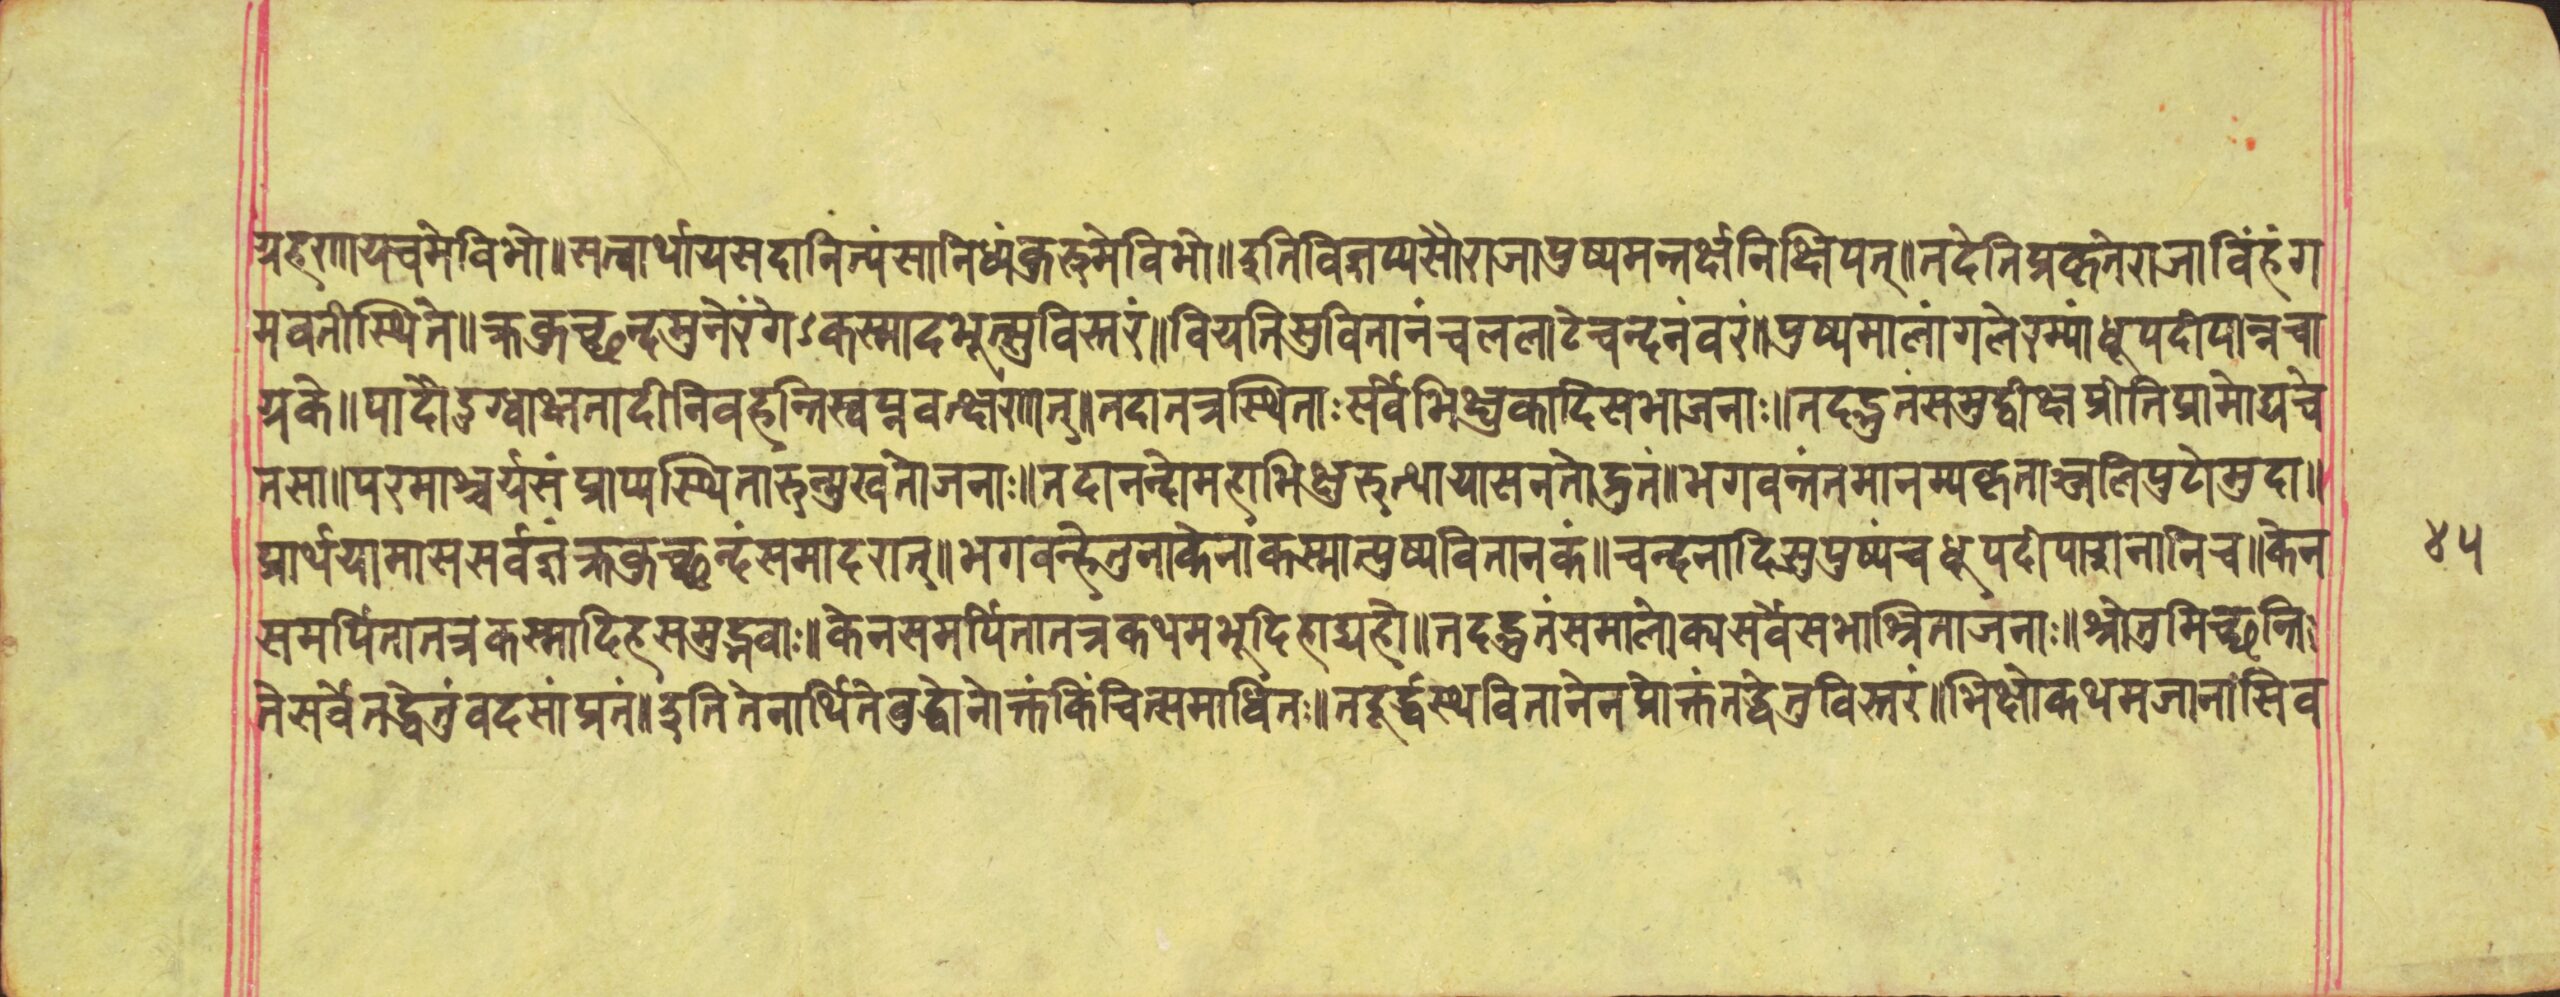 ग्रहणायचमेविभो॥सत्वार्थायसदानित्यंसानिध्यंकुरुमेविभो॥इतिविज्ञप्यसौराजापुष्पमन्तर्क्षेनिक्षिपत्॥तदेतिप्रकृतेराजाविंहंग
मवतीस्थिते॥क्रकुच्छन्दमुनेरंगेऽकस्मादभूत्सुविस्तरं॥वियतिसुवितानंचललाटेचन्दनंवरं॥पुष्पमालांगलेरम्यांधूपदीपान्नचा
ग्रके॥पादौदुग्धाक्षतादीनिवहन्तिस्वप्नवत्क्षणात्॥तदातत्रस्थिताःसर्वेभिक्षुकादिसभाजनाः॥तदद्भुतंसमुद्वीक्ष्यप्रीतिप्रामोद्यचे
तसा॥परमाश्चर्यसंप्राप्यस्थितारुन्मुखतोजनाः॥तदानन्दोमहाभिक्षुरुत्थायासनतोद्रुतं॥भगवन्तंतमानम्यकृताञ्जलिपुटोमुदा॥
प्रार्थयामाससर्वज्ञंक्रकुच्छन्दंसमादरात्॥भगवन्हेतुनाकेनाकस्मात्पुष्पवितानकं॥चन्दनादिसुपुष्पंचधूपदीपान्नानानिच॥केन
समर्पितातत्रकस्मादिहसमुद्भवाः॥केनसमर्पितातत्रकथमभूदिहाद्यहो॥तदद्भुतंसमालोक्यसर्वेसभाश्रिताजनाः॥श्रोतुमिच्छन्ति
तेसर्वेतद्धेतुंवदसांप्रतं॥इतितेनार्थितेबुद्धोनोक्तंकिंचित्समाधितः॥तदूर्द्ध्वस्थवितानेनप्रोक्तंतद्धेतुविस्तरं॥भिक्षोकथमजानासिव
४५